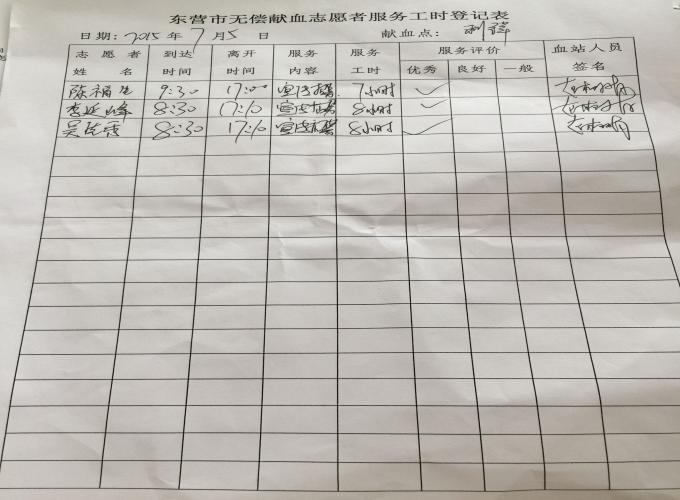 东营市无偿献血志愿者服务工时登记表
日期: 2015 年 7 月 5 日 献血点: 利津
志愿者 到达 离开 服务 服务 服务评价 血站人员
姓名 时间 时间 内容 工时 优秀 良好 一般 签名
陈福生 9:30 17:00 宣传招募 7小时 ✓
李延峰 8:30 17:10 宣传招募 8小时 ✓
吴 秀 8:30 17:10 宣传招募 8小时 ✓